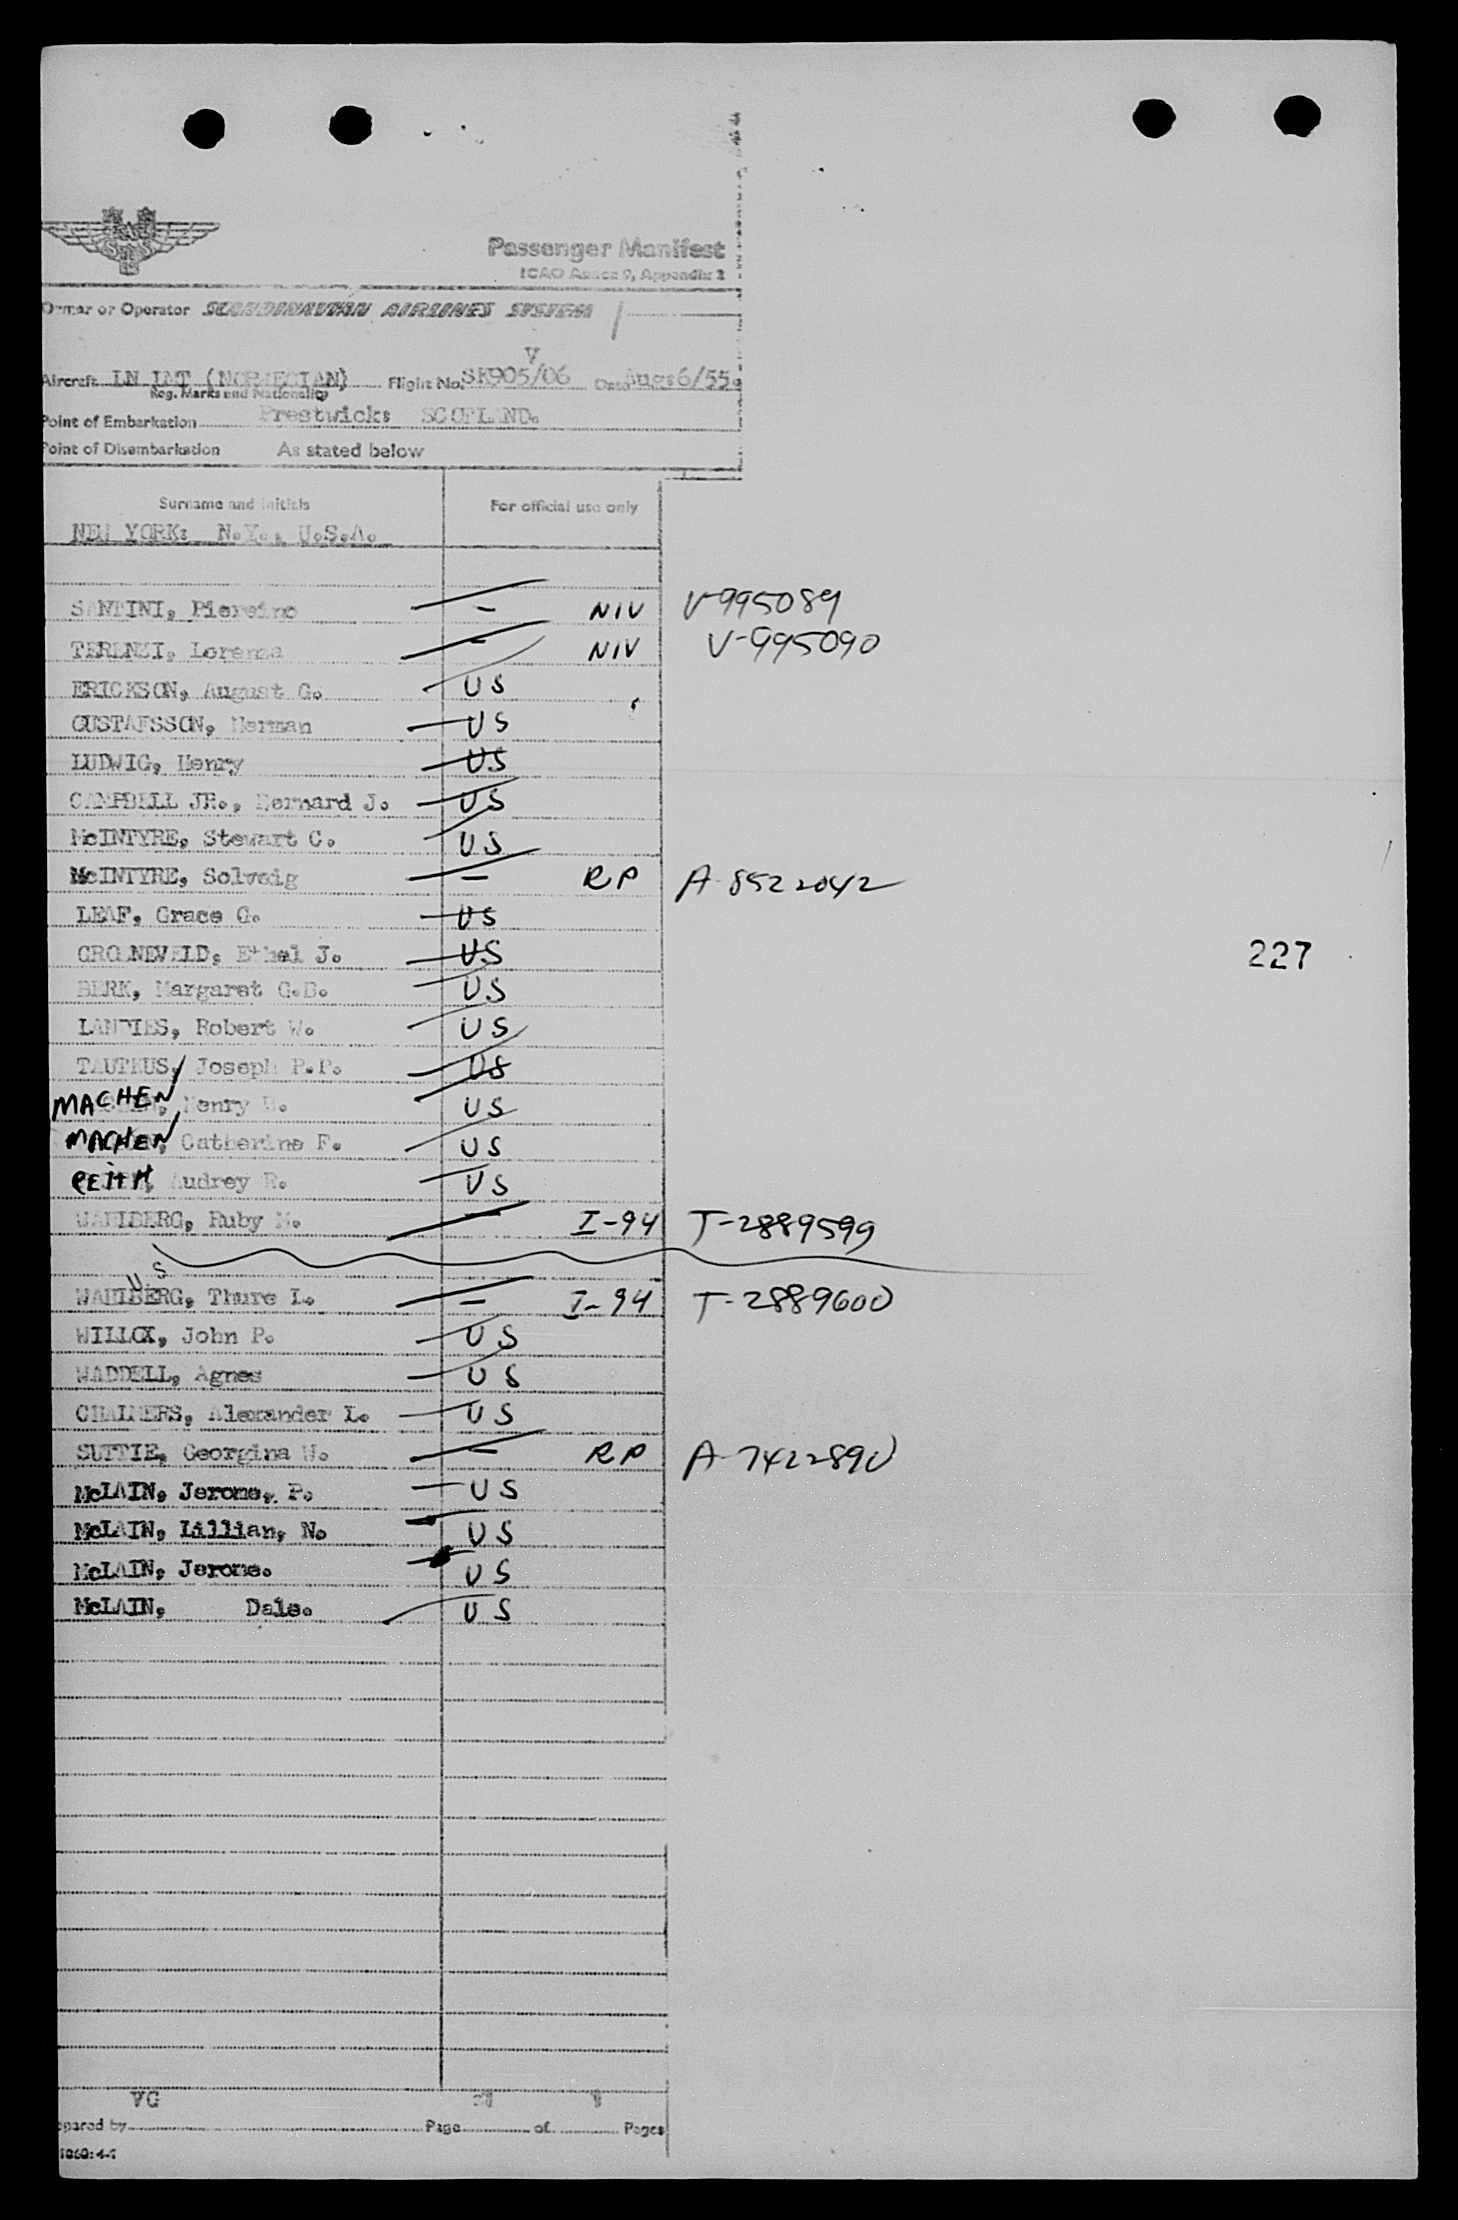 SAS
Passenger Manifest
ICAO Annex 9, Appendix 2
Owner or Operator SCANDINAVIAN AIRLINES SYSTEM
V
Aircraft LN (NORWEGIAN) Flight No. SK905/06 Date Aug:6/55.
Reg. Marks and Nationality
Point of Embarkation Prestwick: SCOTLAND.
Point of Disembarkation As stated below
Surname and initials For official use only
NEW YORK: N.Y., U.S.A.
SANTINI, - NIV V-995089
TERENZI, Lorenza - NIV V-995090
ERICKSON, August G. US
GUSTAFSSON, Herman US
LUDWIG, Henry US
CAMPBELL JR., Bernard J. US
McINTYRE, Stewart C. US
McINTYRE, Solveig - RP A-8522042
LEAF, Grace G. US
GROENEVELD, Ethel J. US
BERK, Margaret G.B. US
Robert W. US
Joseph P.P. US
MACHEN, Henry US
MACHEN, Catherine F. US
Audrey R. US
WAHLBERG, Ruby M. - I-94 T-2889599
US
WAHLBERG, Thure L. - I-94 T-2889600
WILLOX, John P. US
WADDELL, Agnes US
CHALMERS, Alexander L. US
SUTTIE, Georgina W. - RP A-7422890
McLAIN, Jerome, P. US
McLAIN, Lillian, N. US
McLAIN, Jerome. US
McLAIN, Dale. US
227
VG
epared by Page of Pages